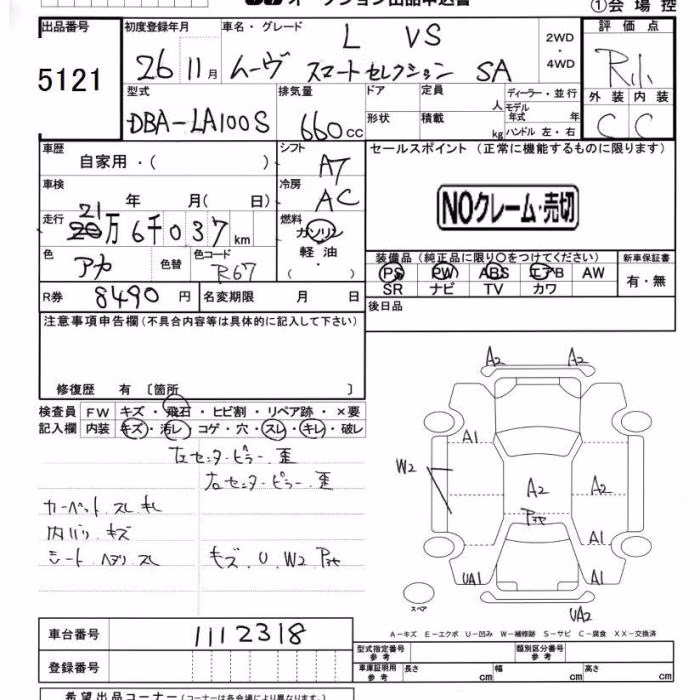 オークション出品申込書
①会場控
出品番号
5121
初度登録年月
26 11月
車名・グレード
L VS
ムーヴ スマートセレクション SA
2WD
・
4WD
評価点
外装 内装
C C
型式
DBA-LA100S
排気量
660cc
ドア
定員
人
形状
積載
kg
ディーラー・並行
モデル
年式 年
ハンドル 左・右
車歴
自家用・( )
シフト
AT
セールスポイント (正常に機能するものに限ります)
NOクレーム・売切
車検
年 月( 日)
冷房
AC
走行
21万6千037km
燃料
ガソリン
軽油
・( )
色
アカ
色替
色コード
R67
装備品 (純正品に限り○をつけてください)
新車保証書
PS PW ABS エアB AW
SR ナビ TV カワ
有・無
R券
8490円
名変期限 月 日
後日品
注意事項申告欄 (不具合内容等は具体的に記入して下さい)
修復歴 有 〔箇所 〕
検査員
記入欄
FW キズ・飛石・ヒビ割・リペア跡・×要
内装 キズ・汚レ・コゲ・穴・スレ・キレ・破レ
左センターピラー 歪
右センターピラー 歪
カーペット スレ キレ
内バリ キズ
シート ヘタリ スレ
キズ. U. W2
A2 A2
A1
W2
A2 A2
A1
UA1 A1
スペア
UA2
A-キズ E-エクボ U-凹み W-補修跡 S-サビ C-腐食 XX-交換済
車台番号
1112318
登録番号
型式指定番号
参考
類別区分番号
参考
車庫証明用
参考
長さ cm 幅 cm 高さ cm
希望出品コーナー (コーナーは各会場により異なります。)